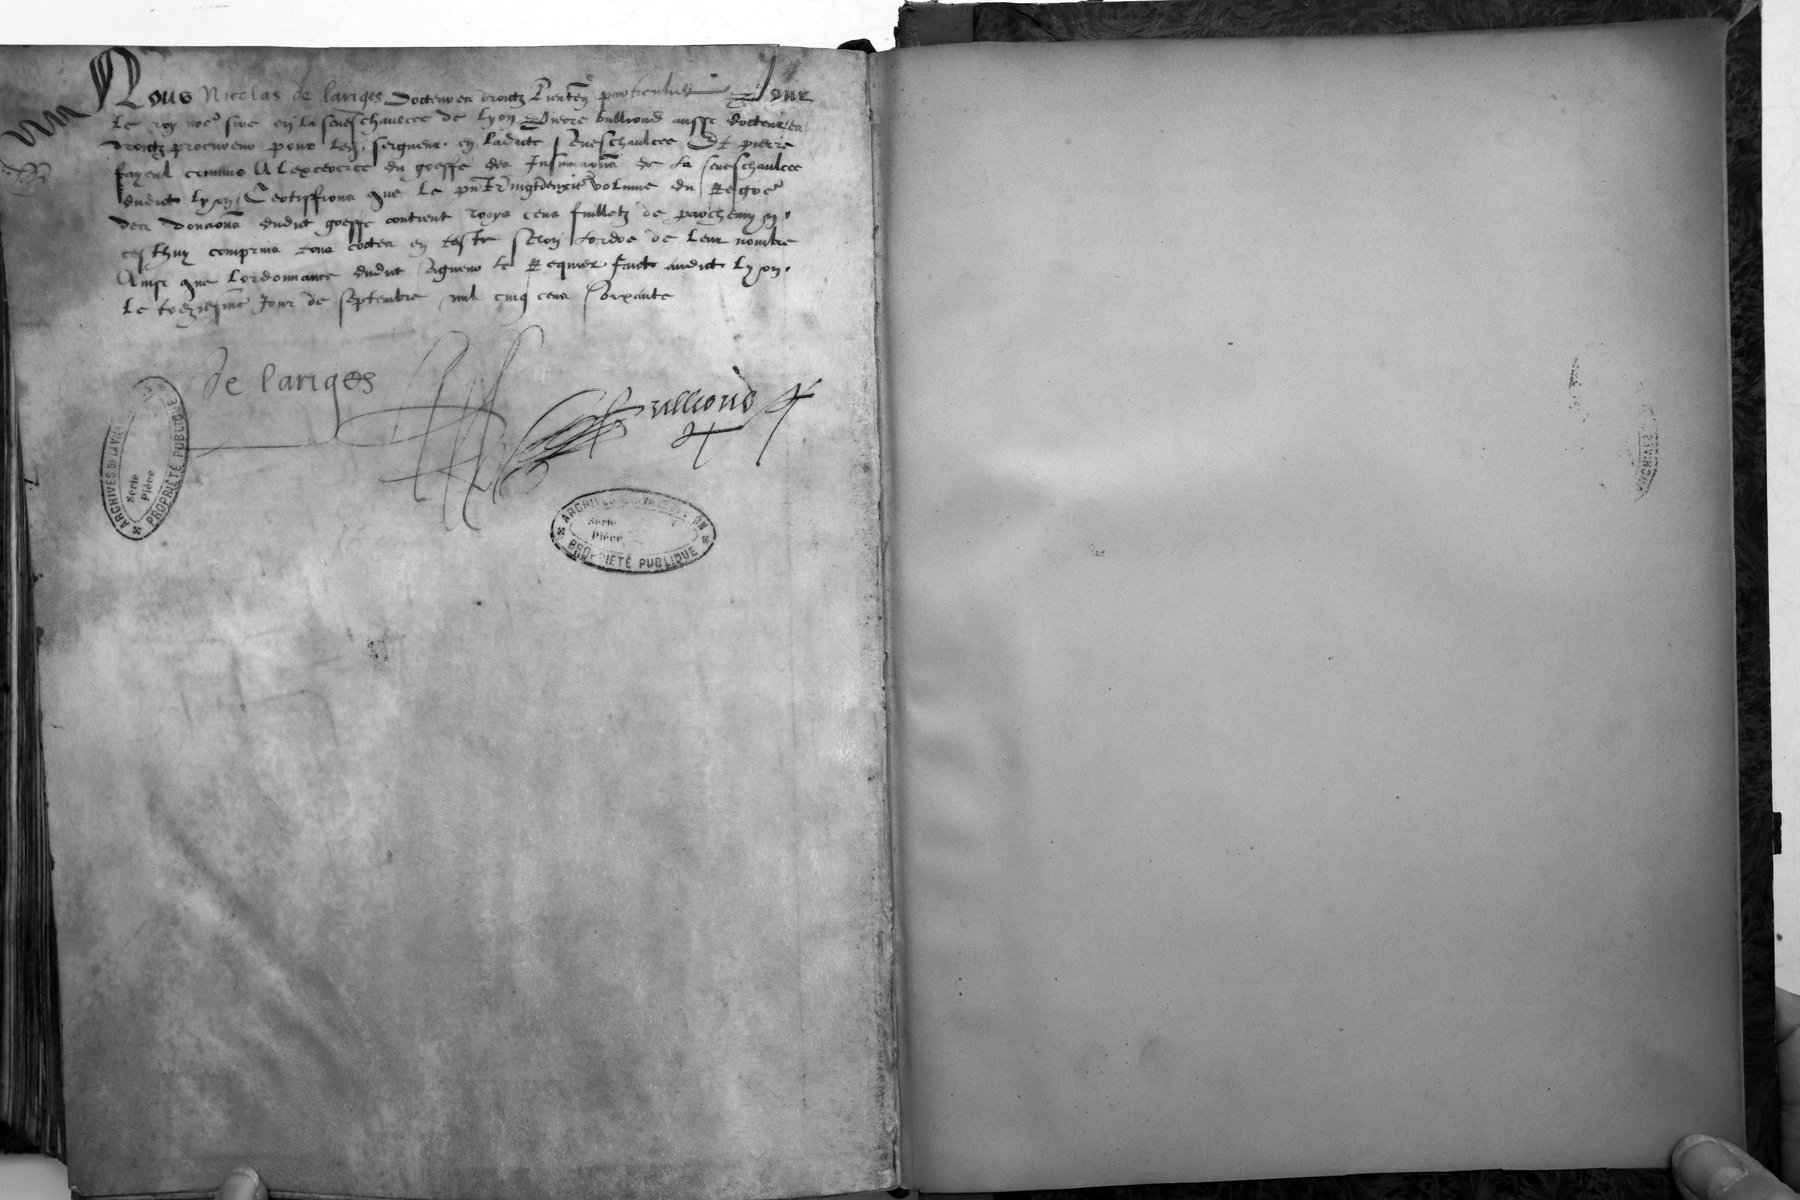 Nous Nicolas de lariges docteur en droictz Lieuten particulier pour
le roy nre sire en la seneschaulcee de Lyon Pierre bullioud aussi docteur en
droictz procureur pour led seigneur en ladicte seneschaulcee Et pierre
fayeul commis A lexercice du greffe des Insinuaons de la seneschaulcee
dudict lyon Certiffions que le pnt vingtdeuxie volume du Regre
des donaons dudict greffe contient troys cens fuilletz de parchemyn
cestuy comprins tous cottez en teste selon lordre de leur nombre
Ainsi que lordonnance dudict seigneur le Requier faict audict lyon
le trezriesme Jour de septembre mil cinq cens soixante
de lariges
Bullioud
ARCHIVES DE LA VILLE
Série
Pièce
PROPRIÉTÉ PUBLIQUE
ARCHIVES DE LA VILLE DE LYON
Série
Pièce
PROPRIÉTÉ PUBLIQUE